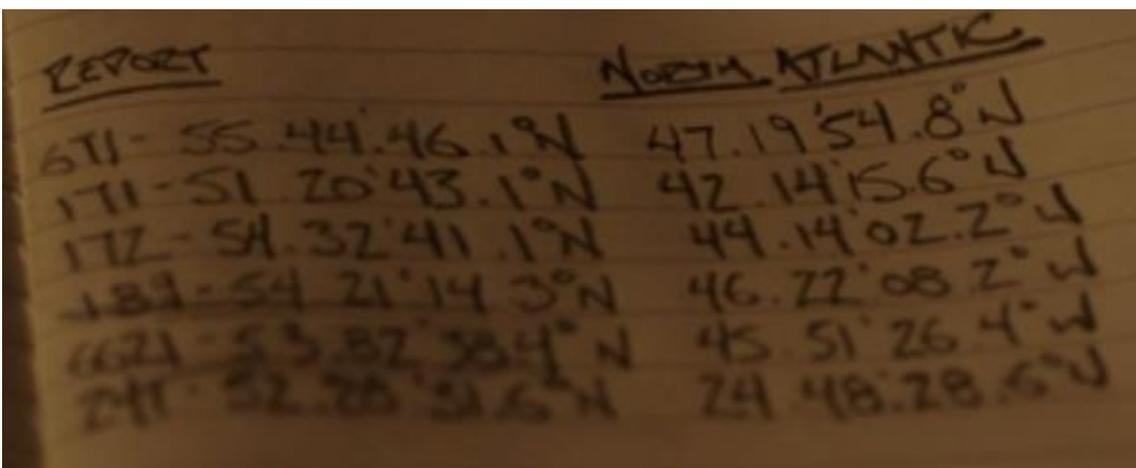 REPORT NORTH ATLANTIC
55.44'.46.1°N 47.19'54.8°W
171-51.20'43.1°N 42.14'15.6°W
172-54.32'41.1°N 44.14'02.2°W
189-54 21'14 3°N 46.22'08 2°W
45 51'26.4°W
24 48'.28.6°W